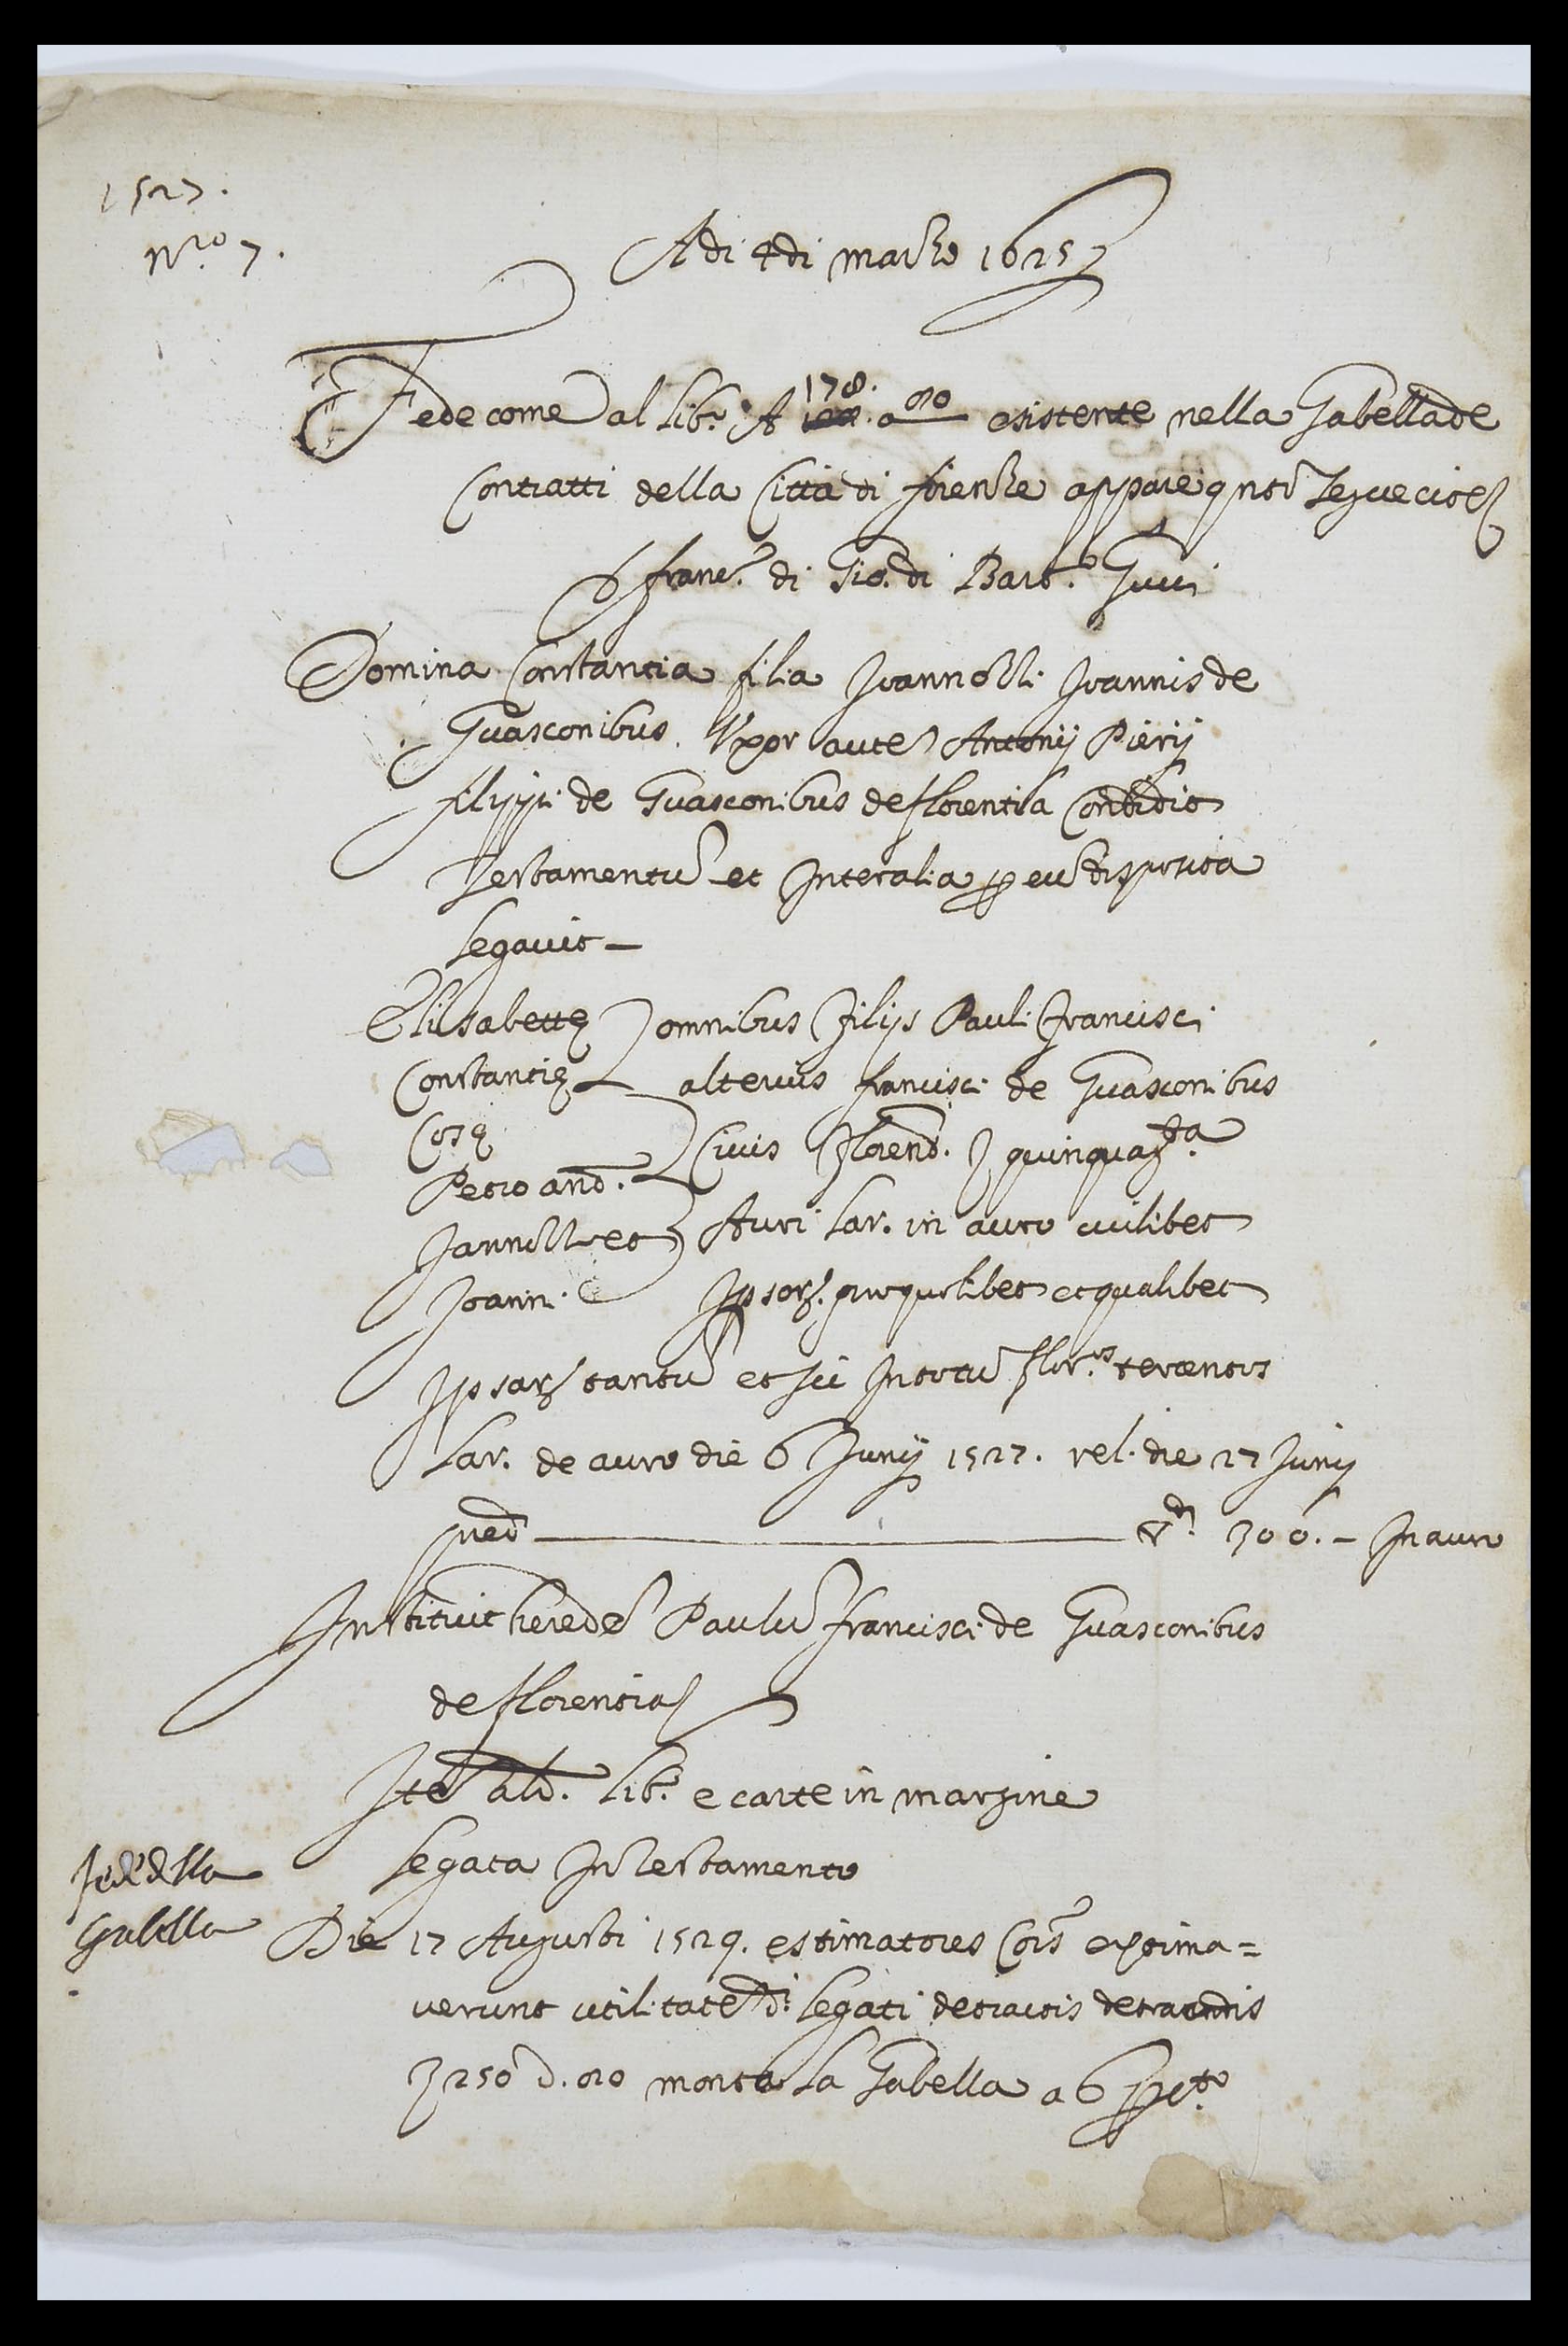 1527.
N.ro 7.
Adi 4 di marzo 1625
Fede come al lib.o A 178. a 010 esistente nella Gabella de
Contratti della Città di firenze appare q.nto segue cioè
franc.o di Gio. di Bart.o
Domina Constantia filia Joannozzi Joannis de
Guasconibus. Vxor aute Antonij Pierij
filippi de Guasconibus de florentia Condidit
Testamentu et Interalia p eu disposita
legauit –
Elisabette omnibus filijs Pauli francisci
Constantie alterius francisci de Guasconibus
Cose Ciuis florend. quinquag.ta
Petro and.
Auri lar. in auro cuilibet
Jannozzo et
Joanni Ipsorz. pro quolibet et qualibet
Ipsarz tantu et sic Intotu flor.os tercentos
Lar. de auro die 6 Junij 1527. rel. die 27 Junij
pred 300. – In auro
Instituit herede Paulu francisci de Guasconibus
de florentia
Ite al d. lib.o e carte in margine
Legata In testamento
fede della
Gabella
Die 17 Augusti 1529. estimatores Cois extima=
uerunt utilitate di legati detractis detraendis
250 d. oro monta la Gabella a 6 p c.to